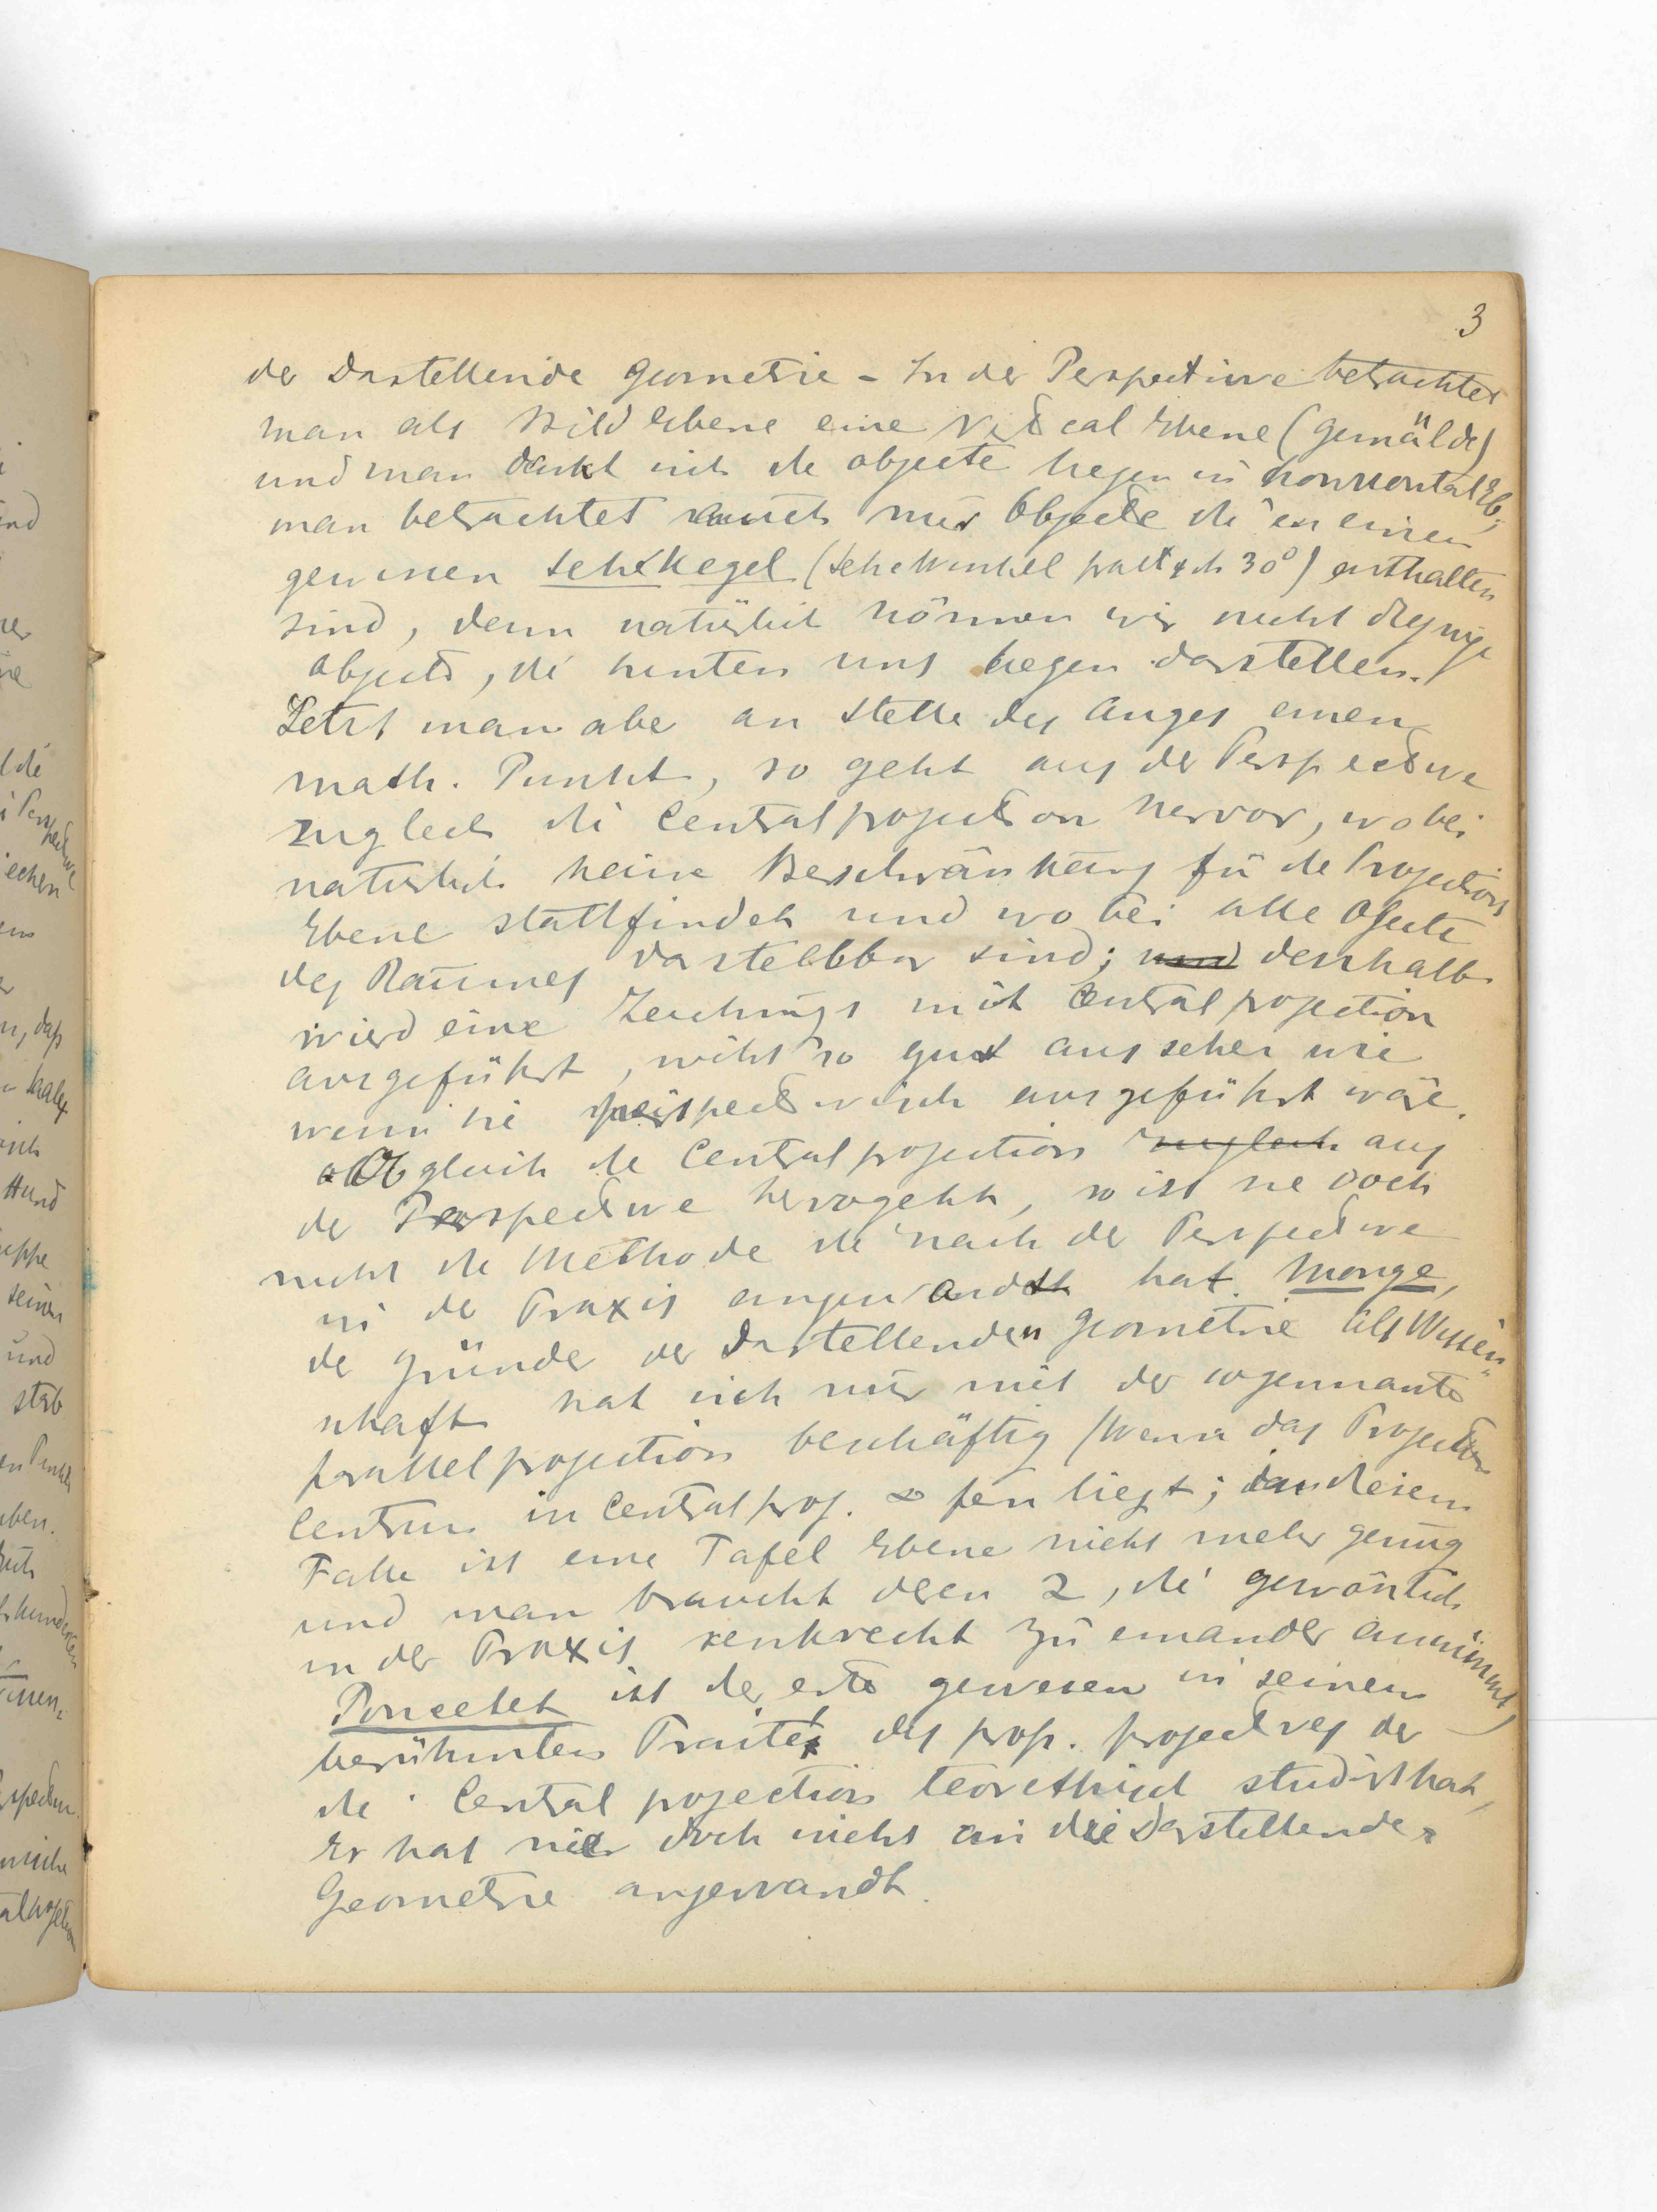 3
der Darstellende Geometrie - In der Perspective betrachtet
man als Bild Ebene eine Vertical Ebene (Gemälde)
und man denkt sich die Objecte liegen in horizontal Eb.,
man betrachtet auch nur Objecte die in einen
gewissen SehKegel (SeheWinkel praktisch 30°) enthalten
sind, denn natürlich können wir nicht diejenige
Objecte, die hinten uns liegen darstellen.
Setzt man aber an Stelle des Auges einen
math. Punkt, so geht aus der Perspective
zugleich die Centralprojection hervor, wobei
natürlich keine Beschränkung für die Projections
Ebene stattfindet und wobei alle Objecte
des Raumes darstellbar sind; und desshalb
wird eine Zeichnung mit Centralprojection
ausgeführt, nicht so gut aussehen wie
wenn sie perspectivisch ausgeführt wäre.
Obgleich die Centralprojection zugleich aus
der Perspective hervogeht, so ist sie doch
nicht die Methode die nach der Perspective
in de Praxis angewandt hat. Monge,
de Gründer der Darstellenden Geometrie als Wissen
schaft hat sich nur mit der sogennante
parallelprojection beschäftig (Wenn das Projection
Centrum in Centralproj. ∞ fern liegt; in diesem
Falle ist eine Tafel Ebene nicht mehr genug
und man braucht deren 2, die gewönlich
in der Praxis senkrecht zu einander annimmt,
Poncelet ist der erste gewesen in seinem
berühmten Traité des prop. projectives der
die Central projection teorethisch studirt hat,
Er hat sie doch nicht an die Darstellende
Geometrie angewandt.